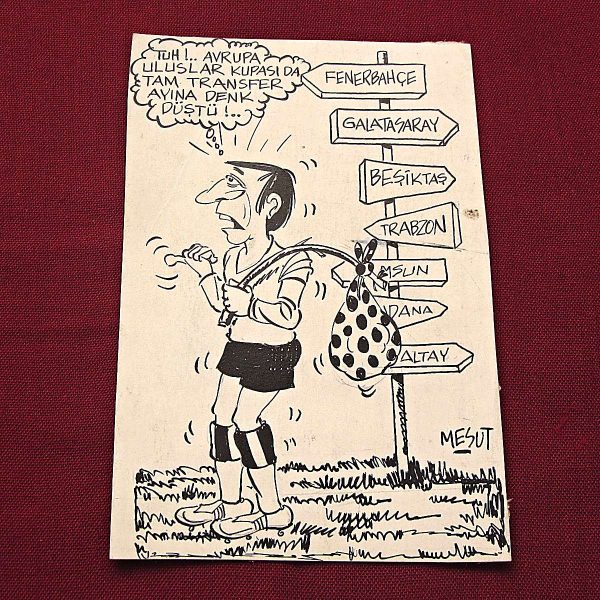 TUH !.. AVRUPA
ULUSLAR KUPASI DA
TAM TRANSFER
AYINA DENK
DÜŞTÜ !...
FENERBAHÇE
GALATASARAY
BEŞİKTAŞ
TRABZON
MSUN
DANA
ALTAY
MESUT